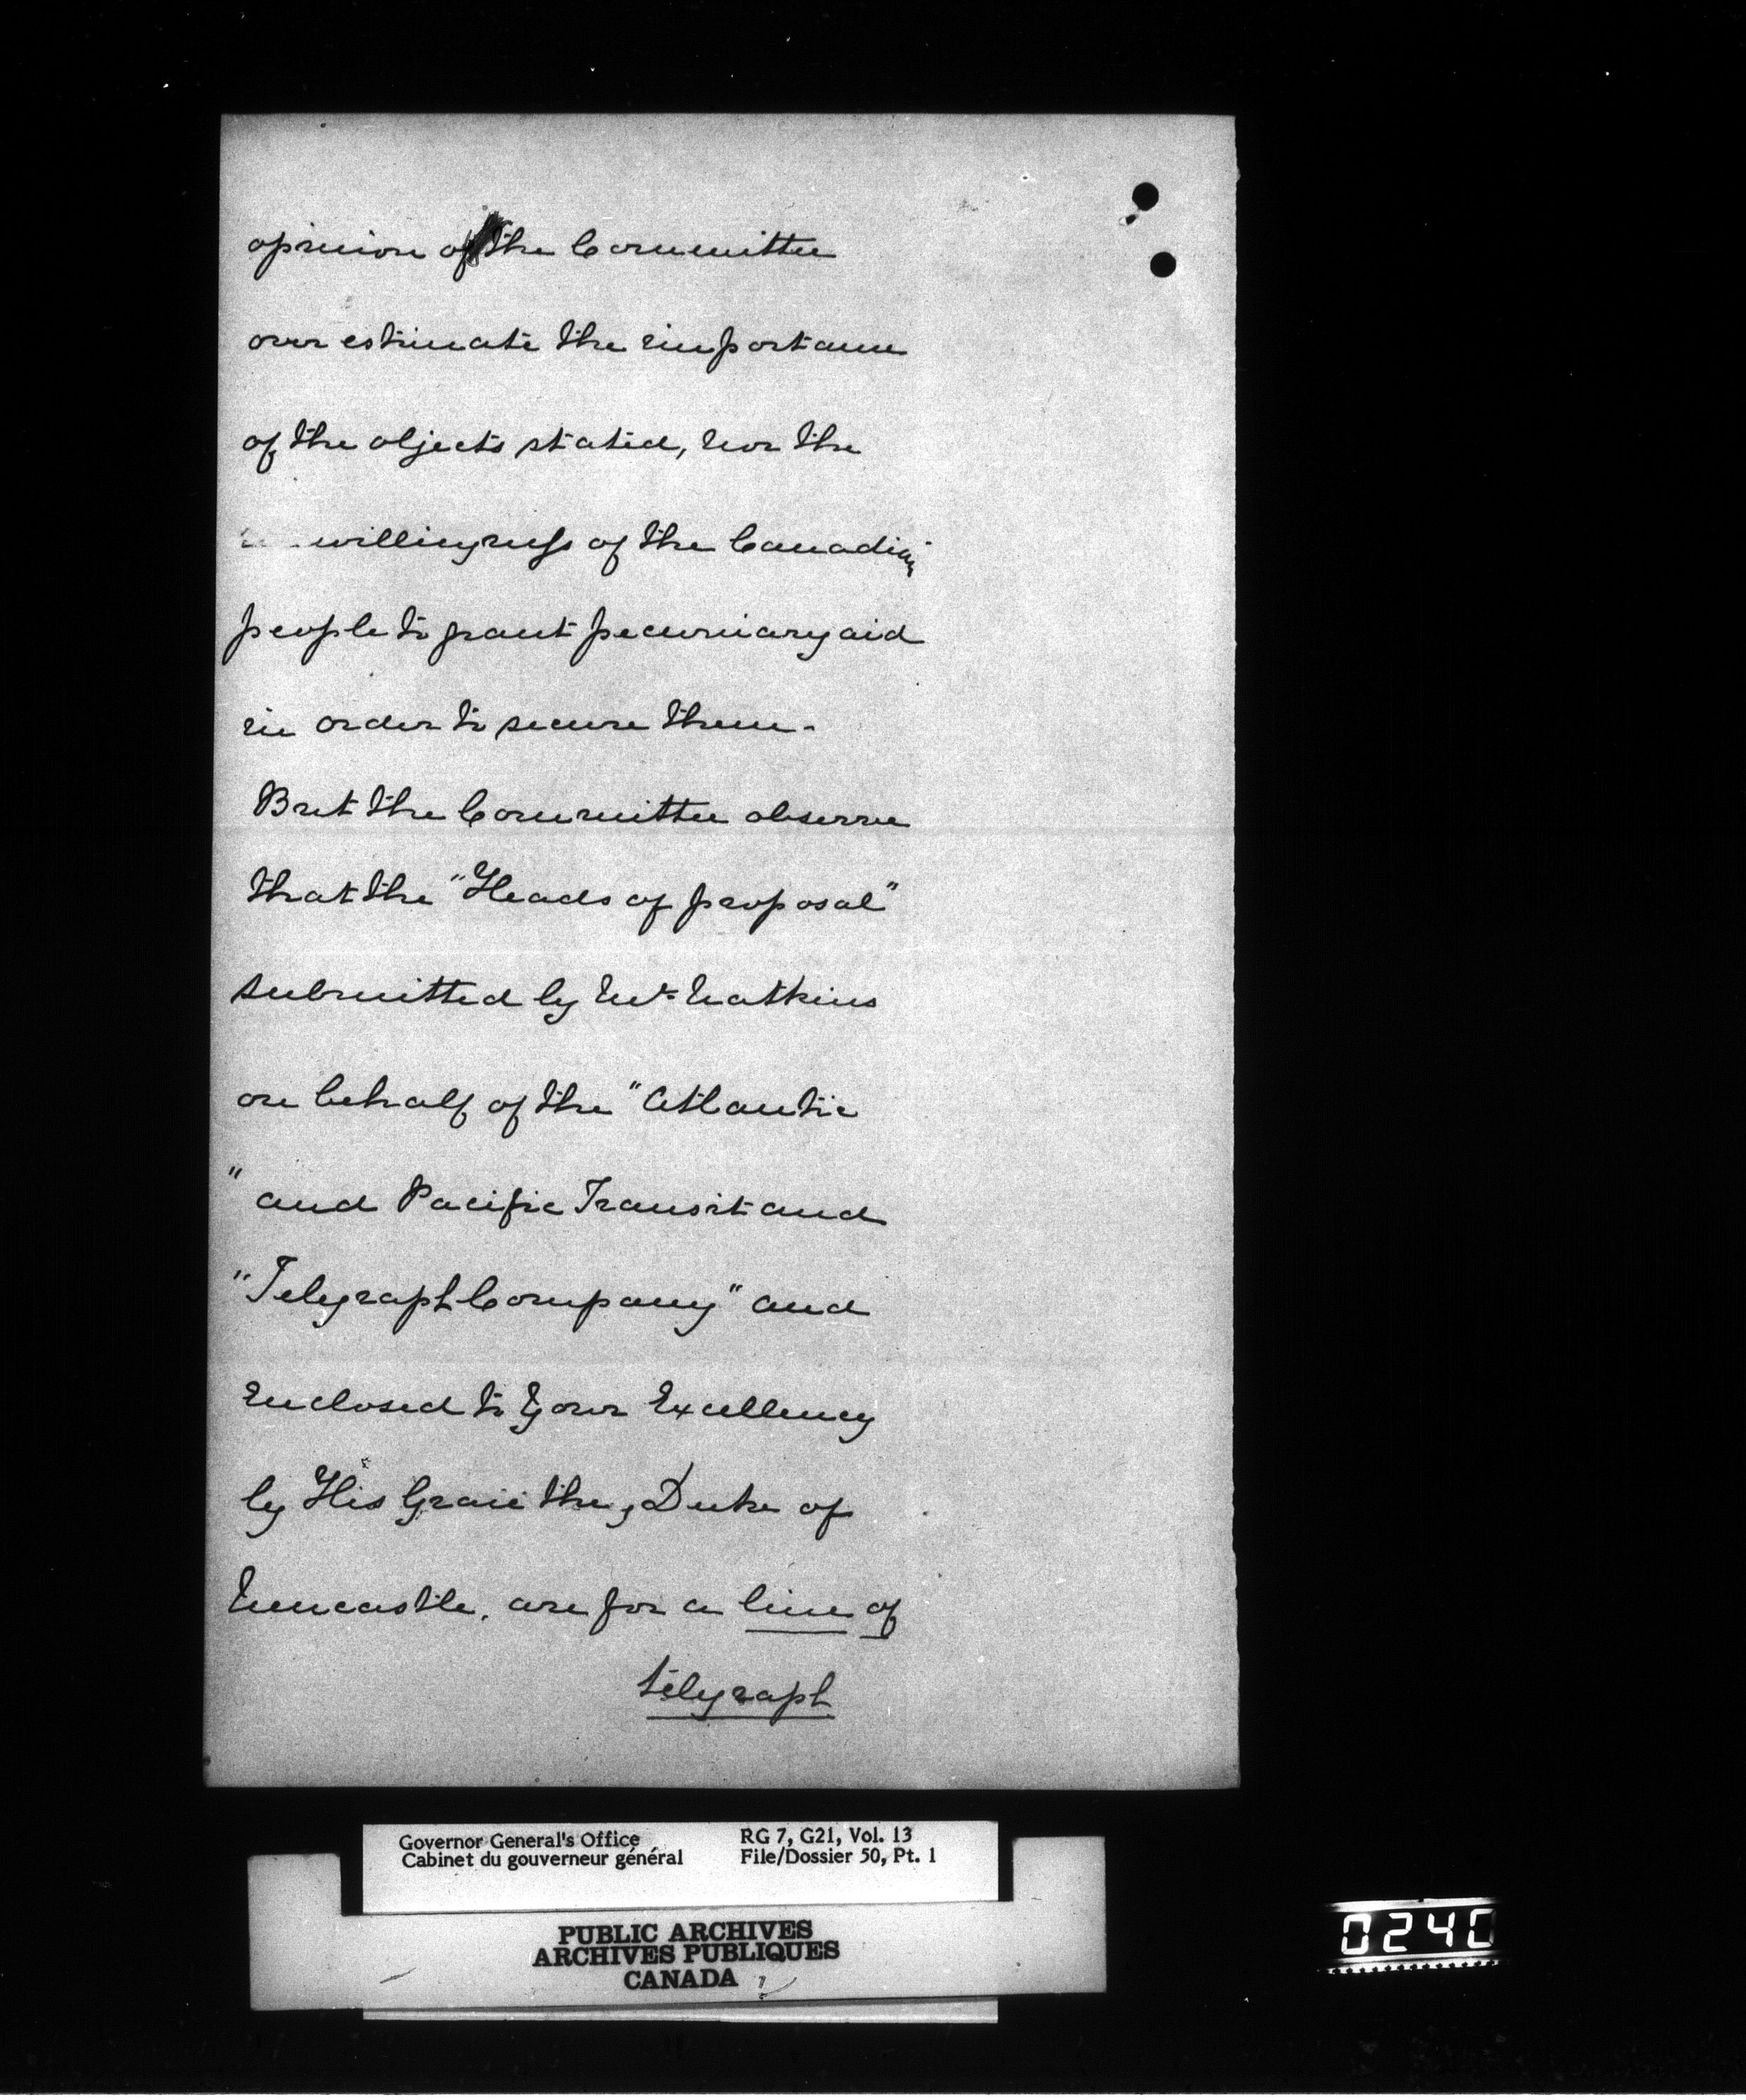 opinion of the Committee
over estimate the importance
of the objects stated, nor the
willingness of the Canadian
people to grant pecuniary aid
in order to secure them.
But the Committee observe
that the "Heads of proposal"
submitted by Mr. Watkins
on behalf of the "Atlantic
"and Pacific Transit and
"Telegraph Company" and
enclosed to Your Excellency
by His Grace the Duke of
Newcastle, are for a line of
telegraph
Governor General's Office
Cabinet du gouverneur général
RG 7, G21, Vol. 13
File/Dossier 50, Pt. 1
PUBLIC ARCHIVES
ARCHIVES PUBLIQUES
CANADA
0240